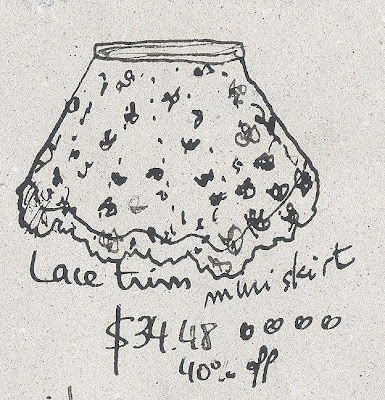 Lace trim mini skirt
$34.48
40% off